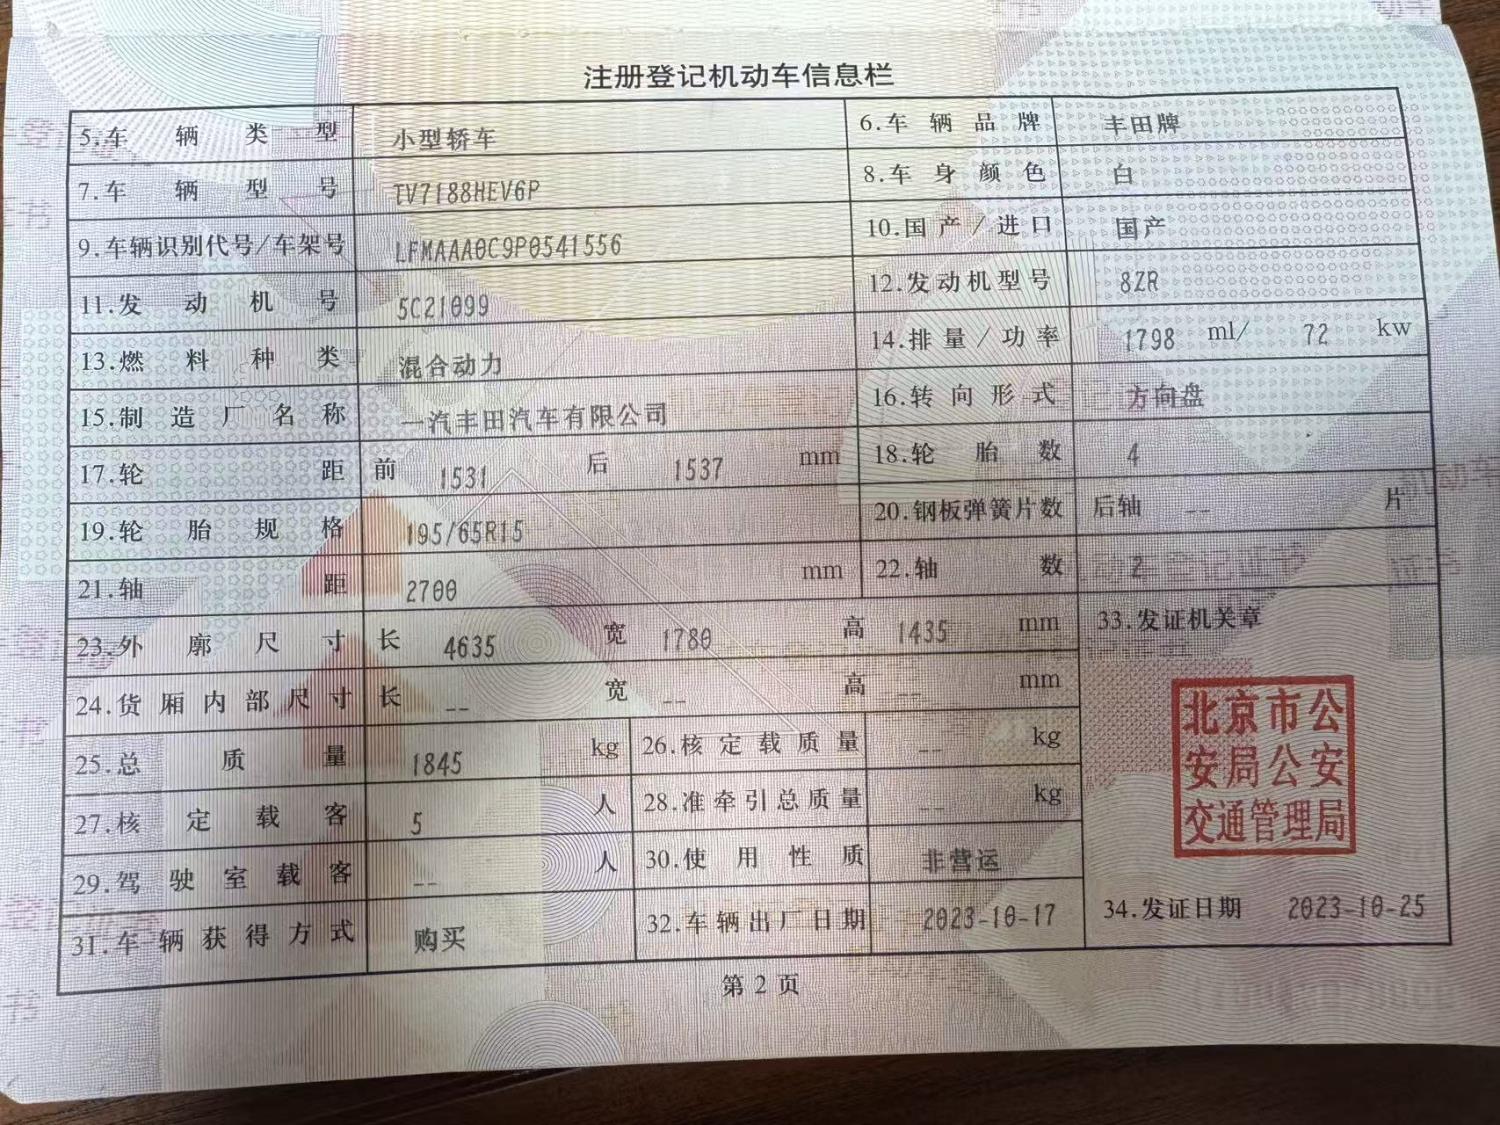 注册登记机动车信息栏
5.车辆类型 小型轿车 6.车辆品牌 丰田牌
7.车辆型号 TV7188HEV6P 8.车身颜色 白
9.车辆识别代号/车架号 LFMAAA0C9P0541556 10.国产/进口 国产
11.发动机号 5C21099 12.发动机型号 8ZR
13.燃料种类 混合动力 14.排量/功率 1798 ml/ 72 kw
15.制造厂名称 一汽丰田汽车有限公司 16.转向形式 方向盘
17.轮距 前 1531 后 1537 mm 18.轮胎数 4
19.轮胎规格 195/65R15 20.钢板弹簧片数 后轴 -- 片
21.轴距 2700 mm 22.轴数 2
23.外廓尺寸 长 4635 宽 1780 高 1435 mm 33.发证机关章
24.货厢内部尺寸 长 -- 宽 -- 高 -- mm
北京市公
安局公安
交通管理局
25.总质量 1845 kg 26.核定载质量 -- kg
27.核定载客 5 人 28.准牵引总质量 -- kg
29.驾驶室载客 -- 人 30.使用性质 非营运
31.车辆获得方式 购买 32.车辆出厂日期 2023-10-17 34.发证日期 2023-10-25
第 2 页